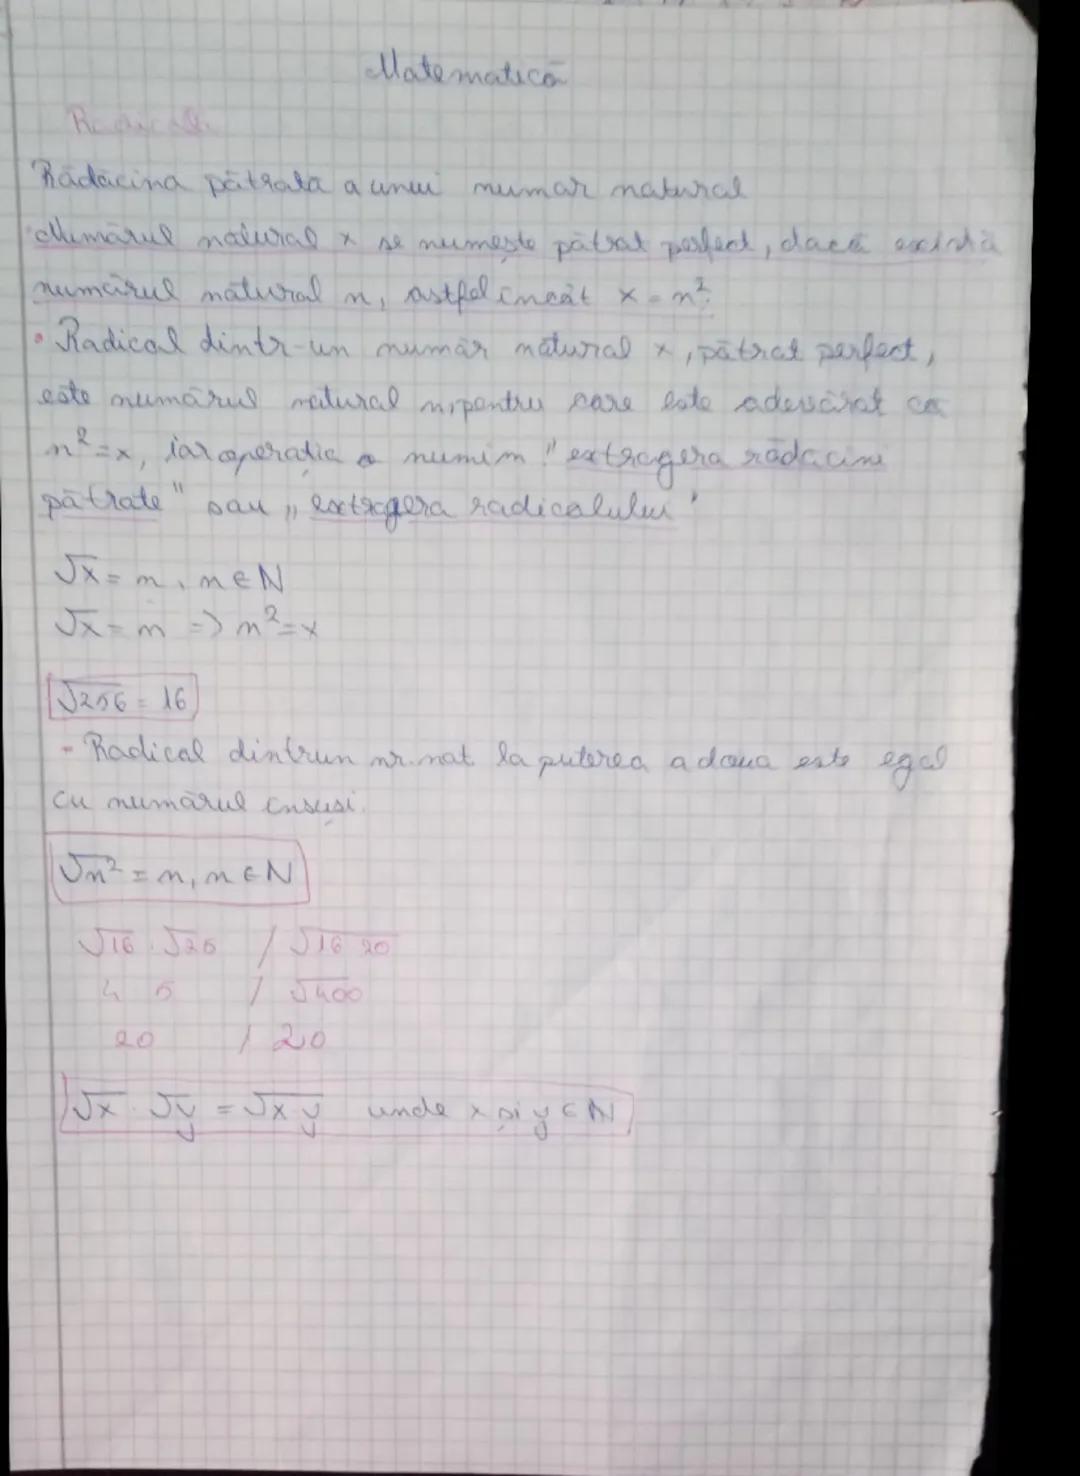 Matematică
Radicali
Rădăcina pătrată a unui numar natural
Numărul natural x se numește pătrat perfect, dacă există
numărul natural n, astfel încât x = n².
• Radical dintr-un număr natural x, pătrat perfect,
este numărul natural n, pentru care este adevărat ca
n² = x, iar operația o numim "extragera rădăcini
pătrate" sau „extragera radicalului"
√x = n, n ∈ N
√x = n => n² = x
√256 = 16
- Radical dintrun nr. nat la puterea a doua este egal
cu numărul însuși.
√n² = n, n ∈ N
√16 · √25 / √16 20
4 5 / √400
20 / 20
√x · √y = √x y unde x și y ∈ N